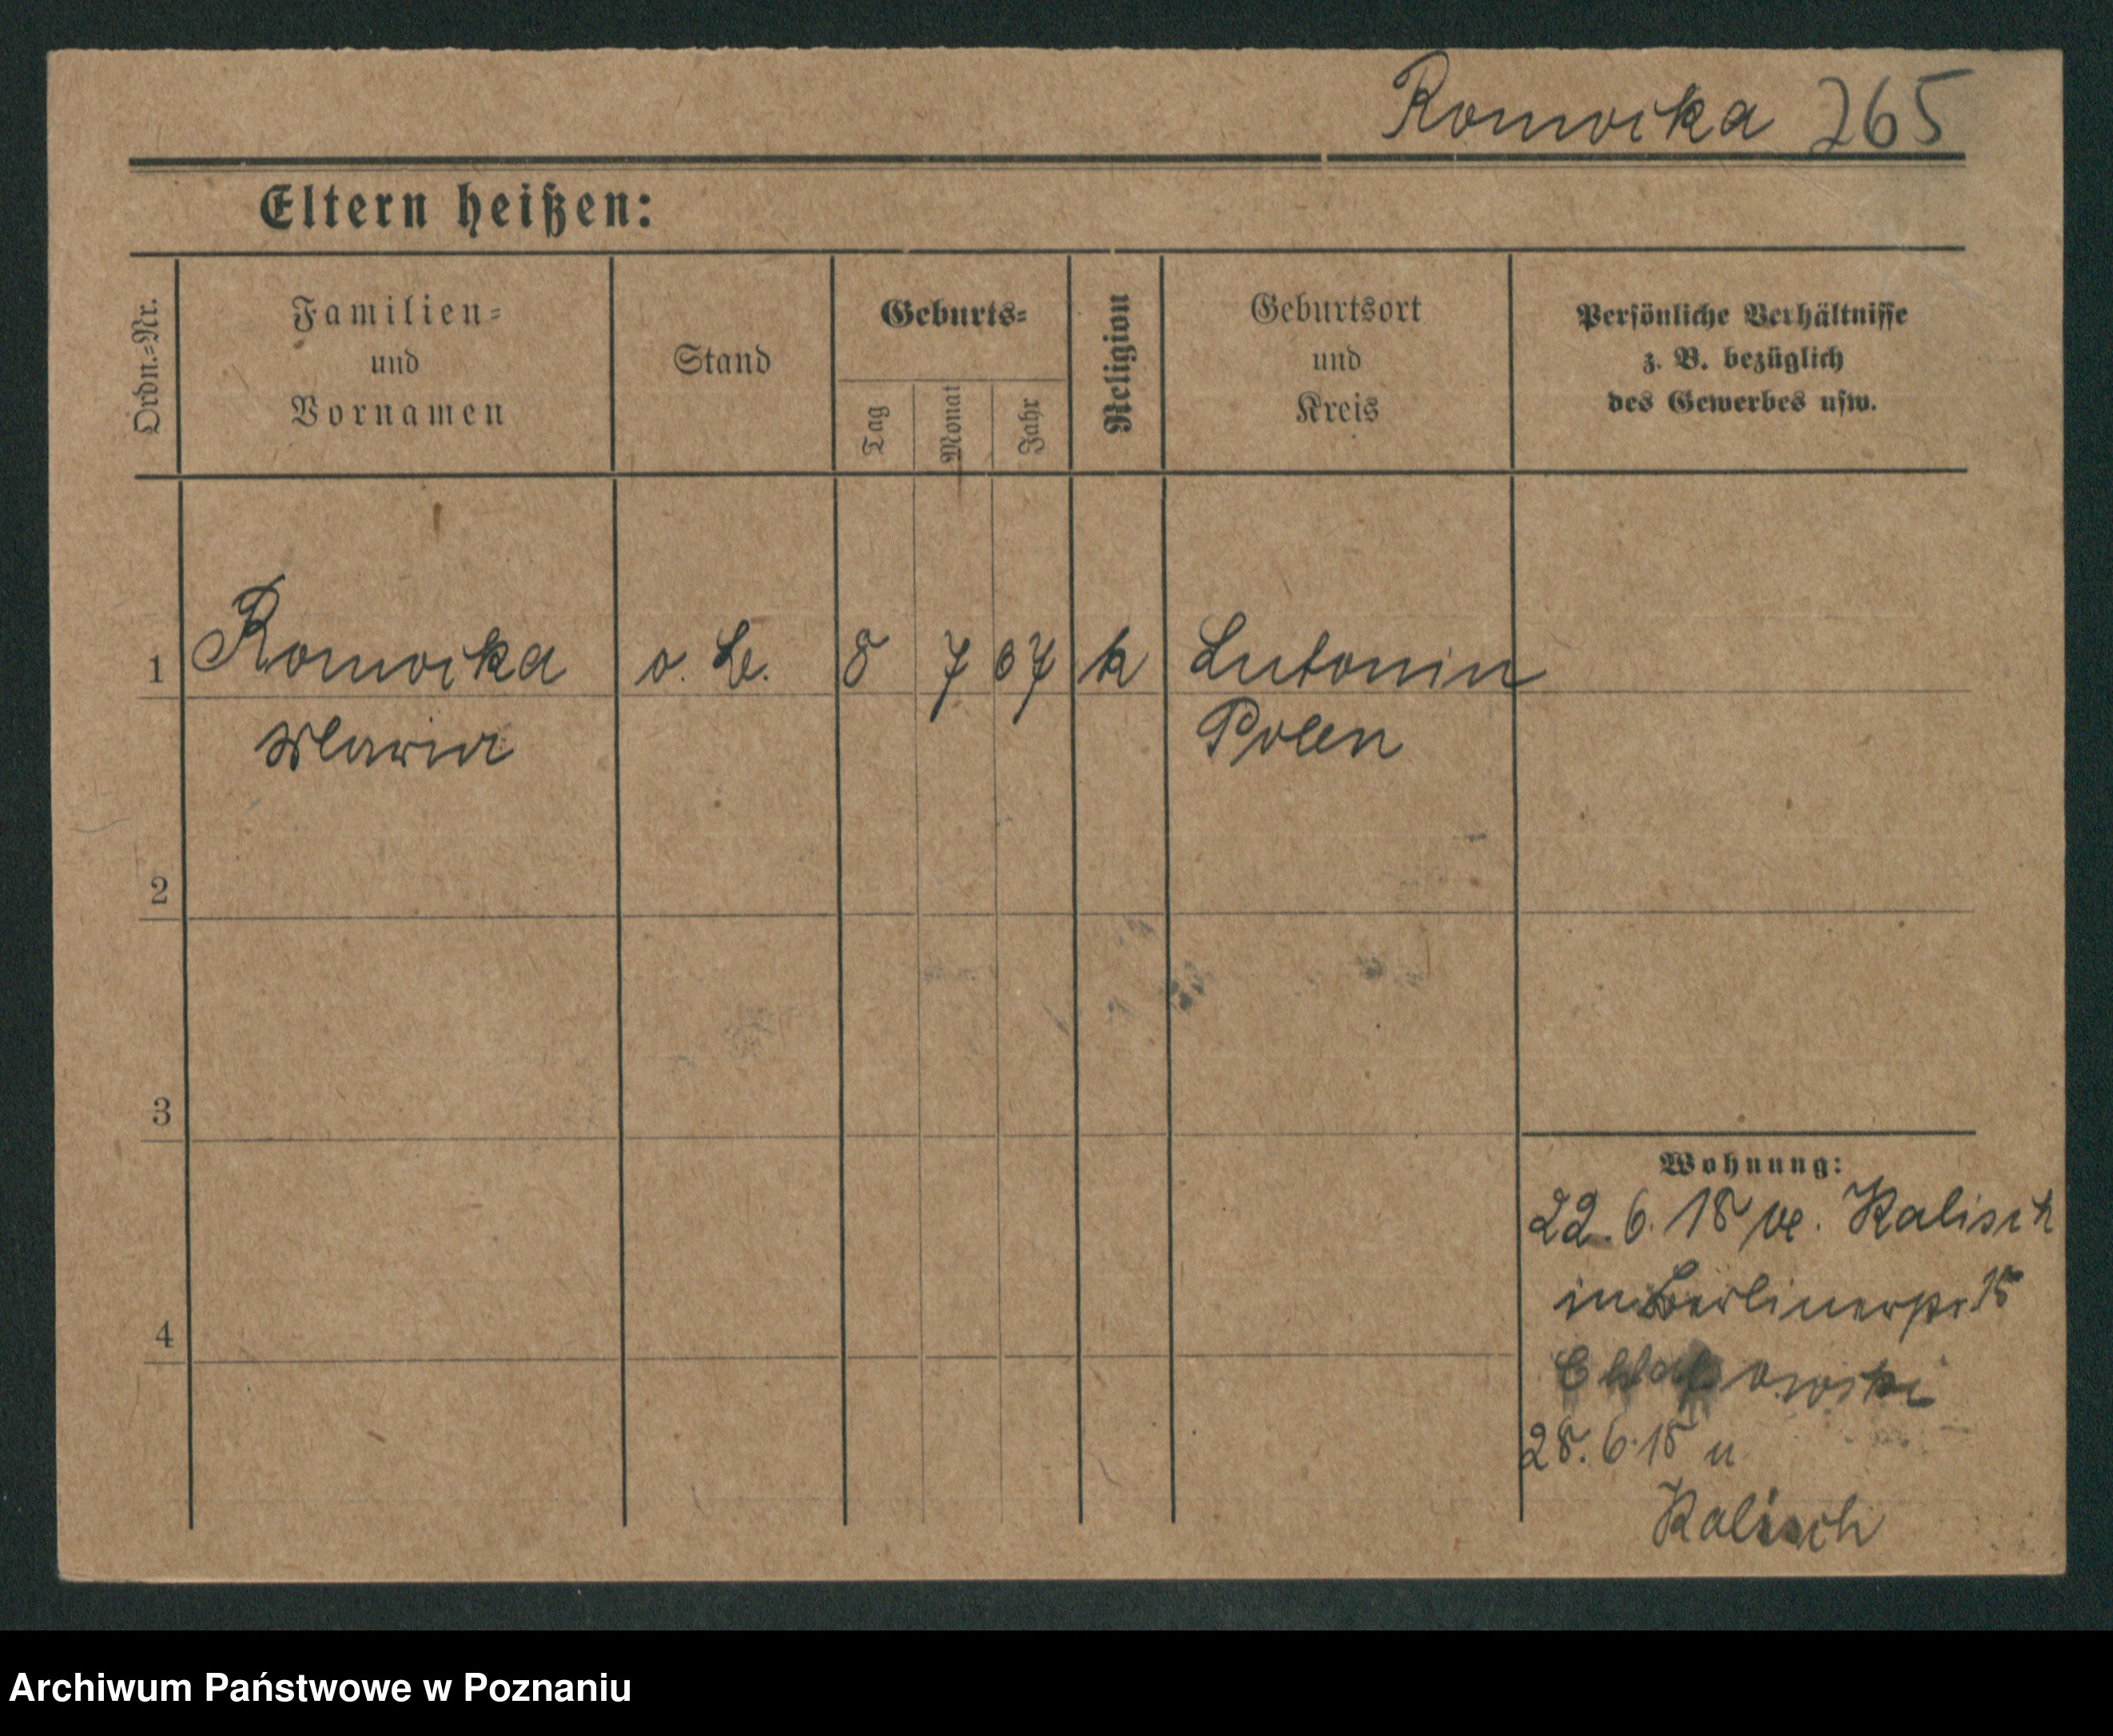 Romocka 265
Eltern heißen:
Ordn.=Nr.
Familien=
und
Vornamen
Stand
Geburts=
Tag
Monat
Jahr
Religion
Geburtsort
und
Kreis
Persönliche Verhältnisse
z. B. bezüglich
des Gewerbes usw.
1 8 7 07 k Lutonin
Maria Polen
2
3
4
Wohnung:
22. 6. 18 Kalisch
in Berlinerstr 15
28. 6. 18 n
Kalisch
Archiwum Państwowe w Poznaniu